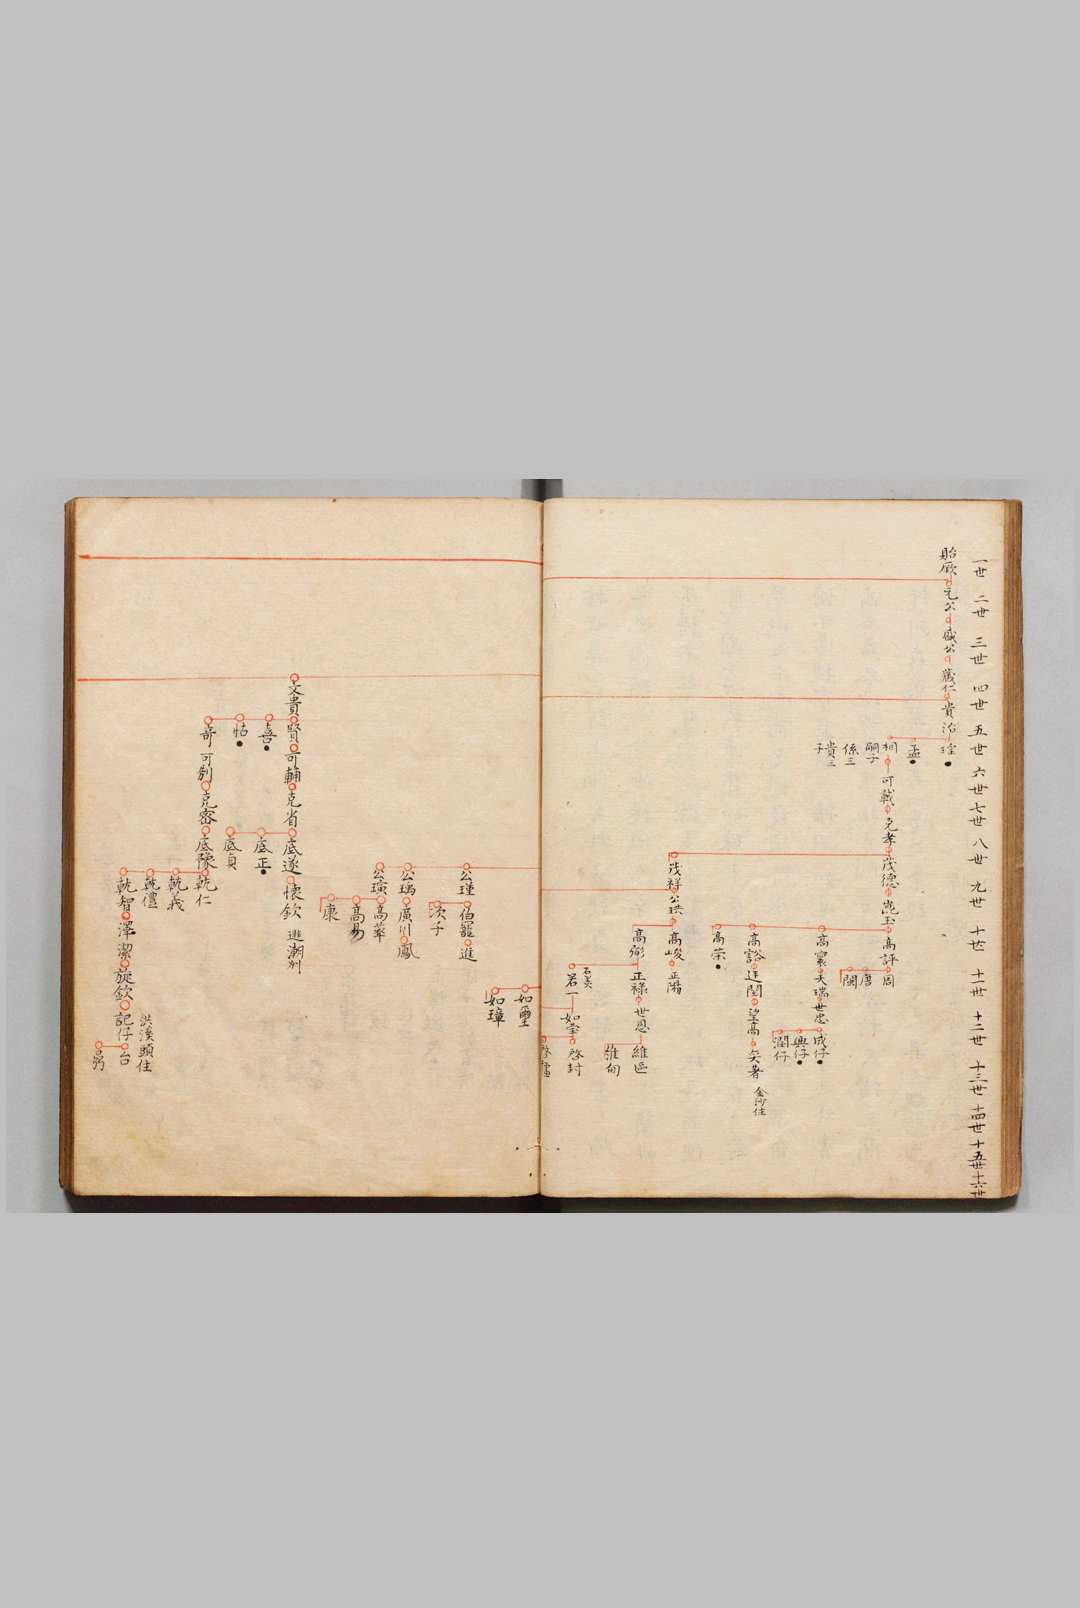 一世
二世
三世
四世
五世
六世
七世
八世
九世
十世
十一世
十二世
十三世
十四世
十五世
十六世
貽厥
元公
盛公
歲仁
貴治
瑝
孟
相
嗣子
係三
貴三子
可載
克孝
茂德
崑玉
高評
周
唐
闕
高寰
天瑞
世忠
成仔
興仔
潤仔
高谿
廷閏
望高
奕著
金沙住
高榮
茂祥
公珙
高峻
正陽
高弼
正祿
世恩
維匡
維甸
君一
如瑩
啓封
如璽
如璋
公瑾
伯寵
進
次子
公瑀
廣川
鳳
公璜
高華
高易
康
文貴
賢
喜
怙
奇
可輔
克省
底遂
底正
底貞
懷欽
逃潮州
可別
克密
底豫
軏仁
軏義
軏禮
軏智
澤潔
旋欽
記仔
洪溪頭住
台
弼